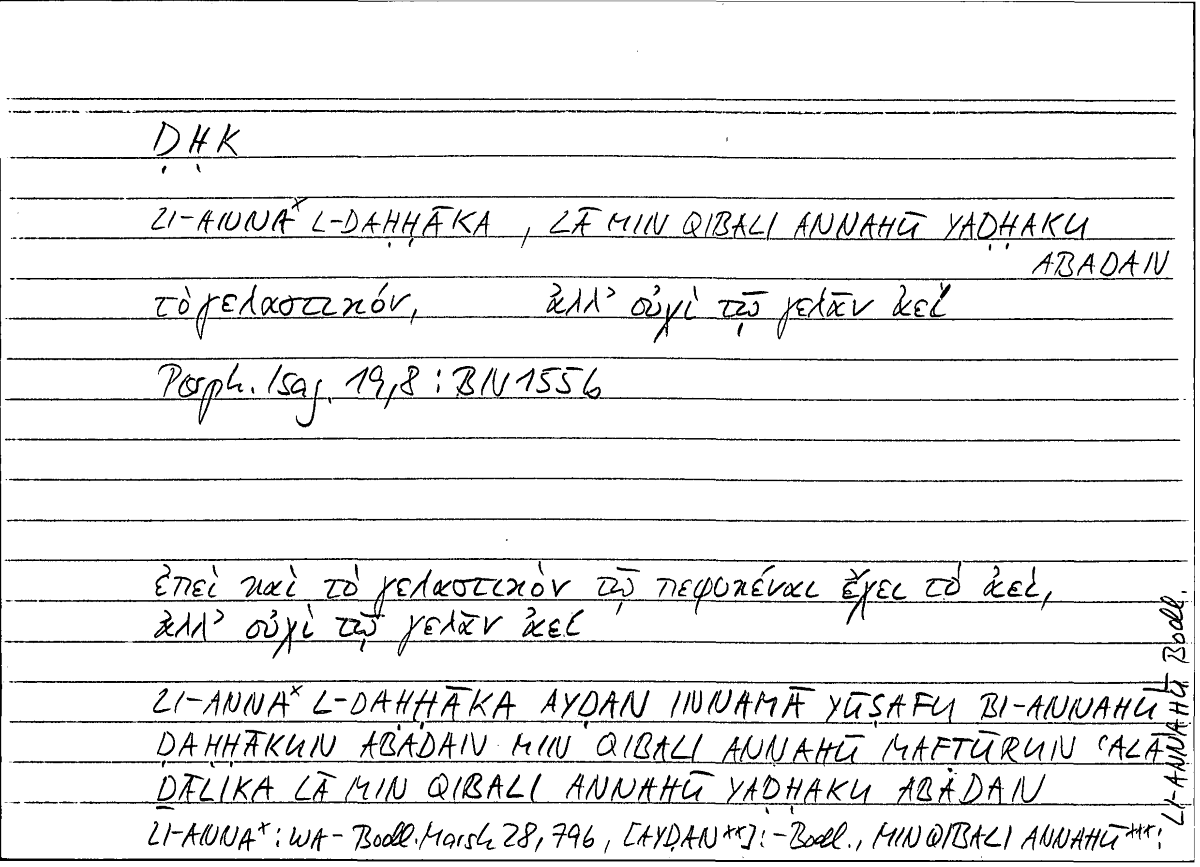 ḌḤK
LI-ANNAˣ L-ḌAḤḤĀKA , LĀ MIN QIBALI ANNAHŪ YAḌḤAKU
ABADAN
τὸ γελαστικόν, ἀλλ' οὐχὶ τῷ γελᾶν ἀεὶ
Porph. Isag. 19,8 : BN 155b
ἐπεὶ καὶ τὸ γελαστικὸν τῷ πεφυκέναι ἔχει τὸ ἀεί,
ἀλλ' οὐχὶ τῷ γελᾶν ἀεί
LI-ANNAˣ L-ḌAḤḤĀKA AYḌAN INNAMĀ YŪṢAFU BI-ANNAHŪ
ḌAḤḤĀKUN ABADAN MIN QIBALI ANNAHŪ MAFṬŪRUN ʿALĀ
ḎĀLIKA LĀ MIN QIBALI ANNAHŪ YAḌḤAKU ABADAN
LI-ANNAˣ : WA- Bodl. Marsh 28, 796, [AYḌAN**] : - Bodl., MIN QIBALI ANNAHŪ*** :
LI-ANNAHŪ Bodl.